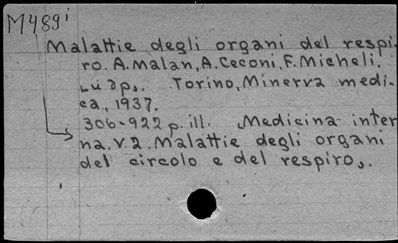 M489i
Malattie degli organi del respi-
ro. A. Malan, A. Ceconi, F. Micheli.
Torino, Minerva medi-
ca, 1937.
306-922 p. ill. Medicina inter
na. V.2. Malattie degli organi
del circolo e del respiro.